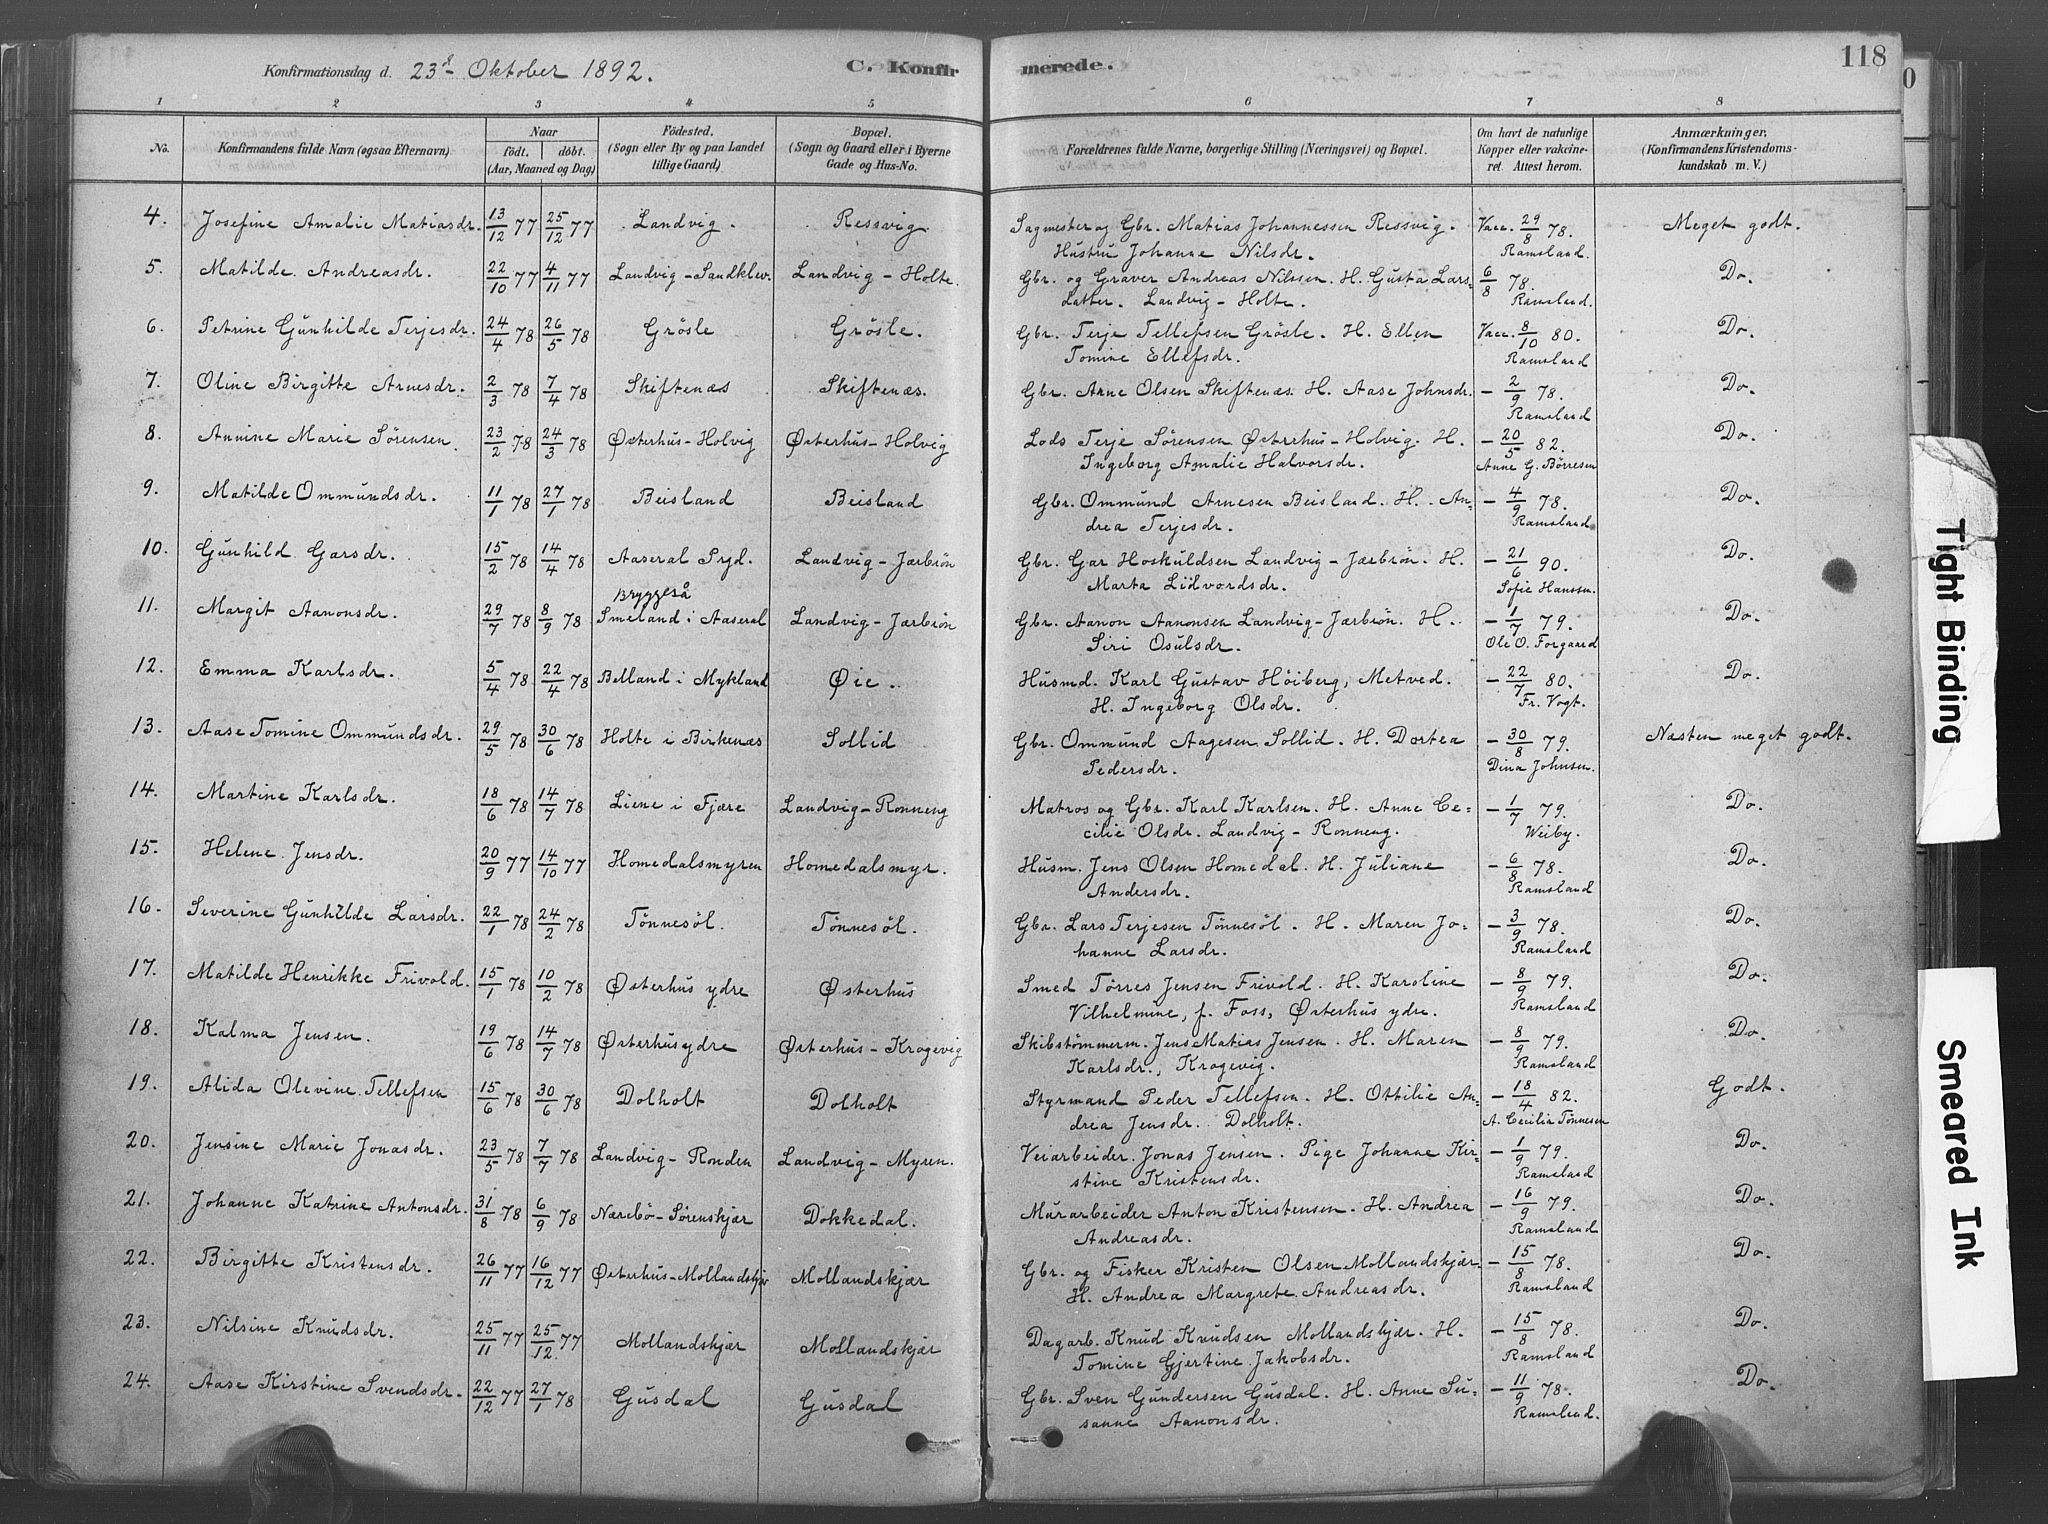 Konfirmationsdag d. 23de Oktober 1892. C. Konfirmerede. 118
1 2 3 4 5 6 7 8
No. Konfirmandens fulde Navn (ogsaa Efternavn) Naar født. døbt. (Aar, Maaned og Dag) Fødested. (Sogn eller By og paa Landet tillige Gaard) Bopæl. (Sogn og Gaard eller i Byerne Gade og Hus-No. Forældrenes fulde Navne, borgerlige Stilling (Næringsvei) og Bopæl. Om havt de naturlige Kopper eller vakcineret. Attest herom. Anmærkninger. (Konfirmandens Kristendomskundskab m. V.)
4. Josefine Amalie Matiasdr. 13/12 77 25/12 77 Landvig. Ressvig. Sagmester og Gbr. Matias Johannessen Ressvig. Vacc. 29/8 78. Meget godt.
Hustru Johanne Nilsdr. Ramsland.
5. Matilde Andreasdr. 22/10 77 4/11 77 Landvig-Sandklev. Landvig-Holte. Gbr. og Graver Andreas Nilssen. H. Gusta Lars- 6/8 78. Do.
datter. Landvig-Holte. Ramsland.
6. Petrine Gunhilde Terjesdr. 24/4 78 26/5 78 Grøsle Grøsle. Gbr. Terje Tellefsen Grøsle. H. Ellen Vacc. 8/10 80. Do.
Tomine Ellefsdr. Ramsland
7. Oline Birgitte Arnesdr. 2/3 78 7/4 78 Skiftenæs Skiftenæs. Gbr. Arne Olsen Skiftenæs. H. Aase Johnsdr. - 2/9 78. Do.
Ramsland
8. Annine Marie Sørensen. 23/2 78 24/3 78 Østerhus-Holvig Østerhus-Holvig Lods Terje Sørensen Østerhus-Holvig. H. - 20/5 82. Do.
Ingeborg Amalie Halvorsdr. Anne G. Børresen
9. Matilde Ommundsdr. 11/1 78 27/1 78 Beisland Beisland Gbr. Ommund Arnesen Beisland. H. An- - 4/9 78. Do.
drea Terjesdr. Ramsland
10. Gunhild Garsdr. 15/2 78 14/4 78 Aaseral Prgd. Landvig-Jærbrøn Gbr. Gar Hoskuldsen Landvig-Jærbrøn. H. - 21/6 90. Do.
Marta Lidvordsdr. Sofie Hanssen.
Bryggeså
11. Margit Aanonsdr. 29/7 78 8/9 78 Smeland i Aaseral Landvig-Jærbrøn Gbr. Aanon Aanonsen Landvig-Jærbrøn. H. - 1/7 79. Do.
Siri Osulsdr. Ole O. Forgaard
12. Emma Karlsdr. 5/4 78 22/4 78 Belland i Mykland Øie. Husmd. Karl Gustav Høiberg, Metved. - 22/7 80. Do.
H. Ingeborg Olsdr. Fr. Vogt.
13. Aase Tomine Ommundsdr. 29/5 78 30/6 78 Holte i Birkenæs Sollid Gbr. Ommund Aagesen Sollid. H. Dortea - 30/8 79. Næsten meget godt.
Pedersdr. Dina Johnsen.
14. Martine Karlsdr. 18/6 78 14/7 78 Liene i Fjære Landvig-Ronneng Matros og Gbr. Karl Karlsen. H. Anne Ce- - 1/7 79. Do.
cilie Olsdr. Landvig-Ronneng. Weiby.
15. Helene Jensdr. 20/9 77 14/10 77 Homedalsmyren Homedalsmyr. Husm. Jens Olsen Homedal. H. Juliane - 6/8 78. Do.
Andersdr. Ramsland
16. Severine Gunhilde Larsdr. 22/1 78 24/2 78 Tønnesøl. Tønnesøl. Gbr. Lars Terjesen Tønnesøl. H. Maren Jo- - 3/9 78. Do.
hanne Larsdr. Ramsland
17. Matilde Henrikke Frivold. 15/1 78 10/2 78 Østerhus ydre Østerhus Smed Tørres Jensen Frivold. H. Karoline - 8/9 79. Do.
Vilhelmine, f. Foss, Østerhus ydre. Ramsland
18. Kalma Jensen. 19/6 78 14/7 78 Østerhus ydre Østerhus-Krogevig Skibstømmerm. Jens Matias Jensen. H. Maren - 8/9 79. Do.
Karlsdr., Krogevig. Ramsland
19. Alida Olevine Tellefsen 15/6 78 30/6 78 Dolholt Dolholt Styrmand Peder Tellefsen. H. Ottilie An- - 18/4 82. Godt.
drea Jensdr. Dolholt. A. Cecilia Tønnesen
20. Jensine Marie Jonasdr. 23/5 78 7/7 78 Landvig-Ronden Landvig-Myren. Veiarbeider. Jonas Jensen. Pige Johanne Kir- - 1/9 79. Do.
stine Kristensdr. Ramsland
21. Johanne Katrine Antonsdr. 31/8 78 6/9 78 Nærebø-Sørenskjær Dokkedal. Murarbeider Anton Kristensen. H. Andrea - 16/9 79. Do.
Andreasdr. Ramsland
22. Birgitte Kristensdr. 26/11 77 16/12 77 Østerhus-Mollandskjær Mollandskjær Gbr. og Fisker Kristen Olsen Mollandskjær. - 15/8 78. Do.
H. Andrea Margrete Andreasdr. Ramsland
23. Nilsine Knudsdr. 25/11 77 25/12 77 Mollandskjær Mollandskjær Dagarb. Knud Knudsen Mollandskjær. H. - 15/8 78. Do.
Tomine Gjertine Jakobsdr. Ramsland
24. Aase Kirstine Svendsdr. 22/12 77 27/1 78 Gusdal Gusdal Gbr. Sven Gundersen Gusdal. H. Anne Su- - 11/9 78. Do.
sanne Aanonsdr. Ramsland.
Tight Binding
Smeared Ink